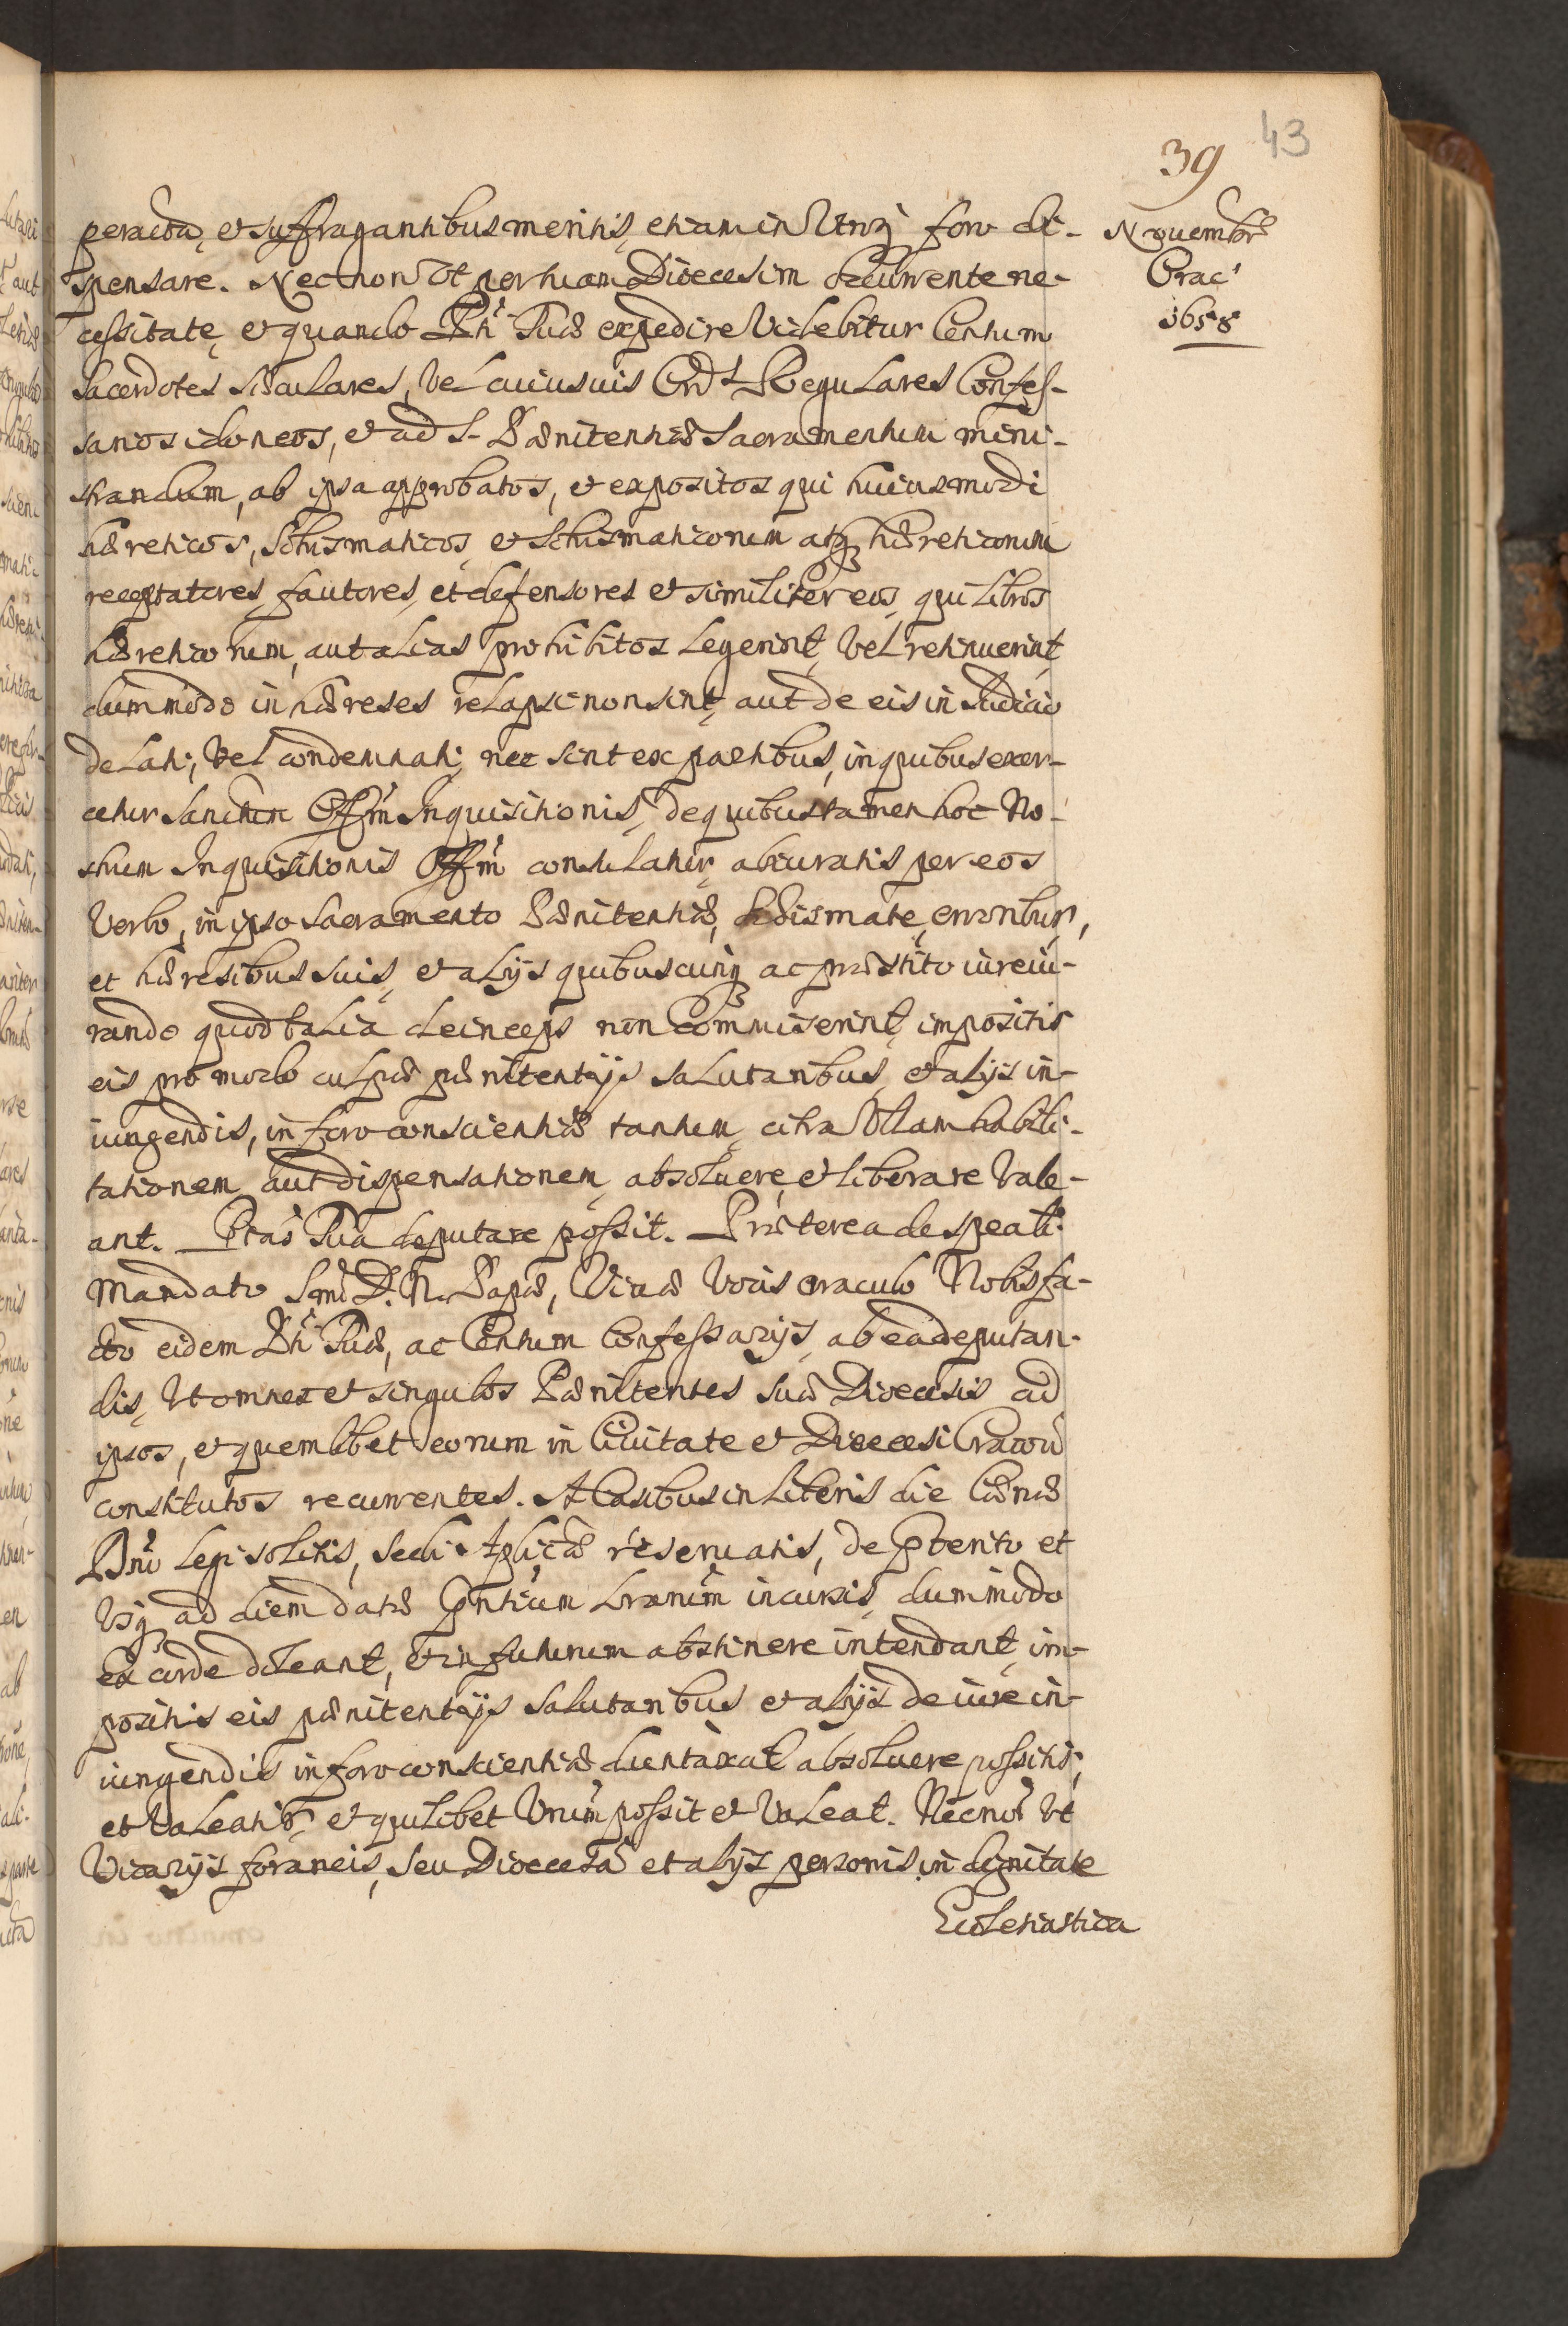 43
39
Nouembr̃
Crac'
1658
peracta, et suffragantibus meritis, etiam in Vtroq; foro di-
spensare. Nec non Vt per tuam Dioecesim occurrente ne-
cessitate, et quando Ptĩ Tuæ expedire Videbitur Centum
Sacerdotes Sæculares, Vel cuiusuis Ord: Regulares Confes-
sarios idoneos, et ad S. Pænitentiæ Sacramentum mini-
strandum, ab ipsa approbatos, et expositos qui huiusmodi
hæreticos, Schismaticos, et Schismaticorum atq; hæreticorum
receptatores, fautores, et defensores et similiter eos, qui libros
hæreticorum, aut alias prohibitos Legerint, Vel retinuerint,
dummodo in hæreses relapsi non sint, aut de eis in Iudicio
delati, Vel condemnati, nec sint ex partibus, in quibus exer-
cetur Sanctum Offm̃ Inquisitionis, de quibus tamen hoc No-
strum Inquisitionis Offm̃ consulatur, abiuratis per eos
Verbo, in ipso Sacramento Pænitentiæ, Schismate, erroribus,
et hæresibus suis, et alijs quibuscunq; ac præstito iureiu-
rando quod talia deinceps non Commiserint, impositis
eis pro modo culpæ pænitentijs salutaribus, et alijs in-
iungendis, in foro conscientiæ tantum, citra Vllam habili-
tationem, aut dispensationem, absoluere, et liberare Vale-
ant. Ptas̃ Tua deputare possit. Præterea de speali
Mandato Smĩ D. N. Papæ, Viuæ Vocis oraculo Nobis fa-
cto eidem Ptĩ Tuæ, ac Centum Confessarijs, ab ea deputan-
dis, Vt omnes et singulos Pænitentes suæ Dioecesis ad
ipsos, et quemlibet eorum in Ciuitate et Dioecesi Cracoũ
constitutos recurrentes. A Casibus in literis die Cænæ
Dnĩ Legi solitis, Sedi Aplicæ reseruatis, de Pterito et
Vsq; ad diem datæ Pntium Lrarum̃ incursis, dummodo
ex corde doleant, et in futurum abstinere intendant, im-
positis eis pænitentijs salutaribus et alijs de iure in-
iungendis in foro conscientiæ duntaxat absoluere possitis,
et Valeatis, et quilibet Vrum̃ possit et Valeat. Necnoñ Vt
Vicarijs foraneis, seu Dioecesã et alijs personis in dignitate
Ecclesiastica